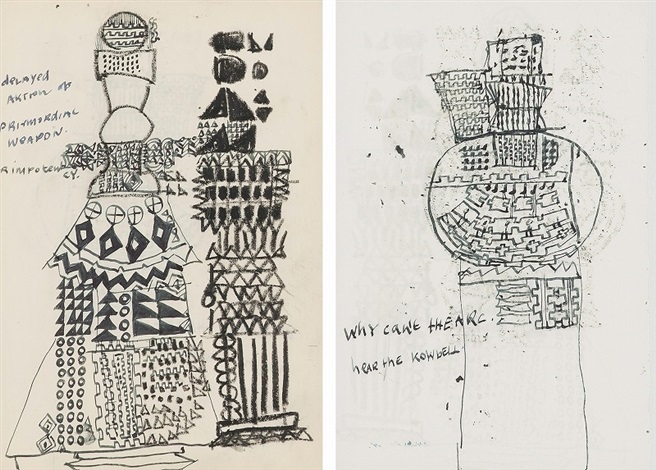 delayed
AKtion of
PRIMORDIAL
WEAPON.
RIMPOTEN
CY.
WHY CANT THE ARC
hear the KOWBELL